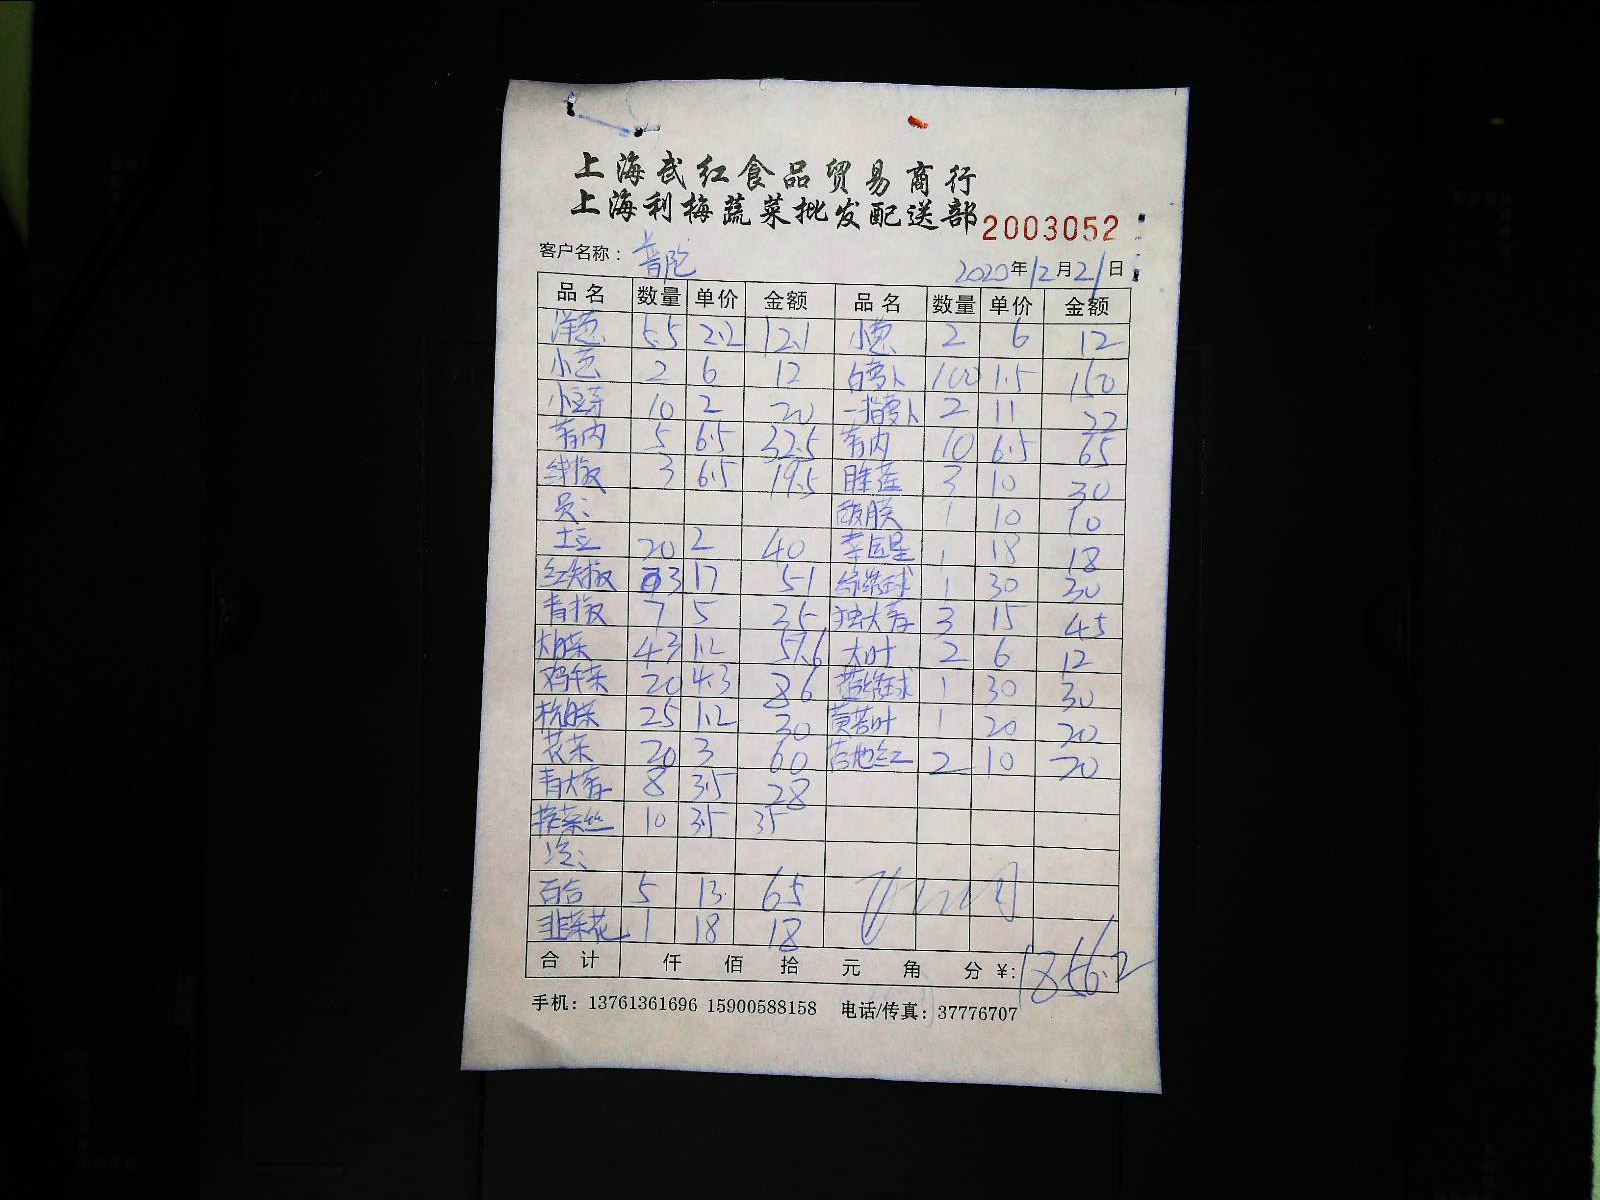 上海武红食品贸易商行
上海利梅蔬菜批发配送部 2003052
客户名称： 普陀 2020年12月21日
品名 数量 单价 金额 品名 数量 单价 金额
洋葱 5.5 2.2 12.1 小葱 2 6 12
小葱 2 6 12 白萝卜 100 1.5 150
小豆芽 10 2 20 一指萝卜 2 11 22
蒜肉 5 6.5 32.5 蒜肉 10 6.5 65
线椒 3 6.5 19.5 睡莲 3 10 30
员： 1 10 10
土豆 20 2 40 幸运星 1 18 18
红尖椒 3 17 51 球 1 30 30
青椒 7 5 35 独大蒜 3 15 45
大白菜 43 1.2 51.6 大叶 2 6 12
鸡毛菜 20 4.3 86 球 1 30 30
杭白菜 25 1.2 30 黄苦叶 1 20 20
花菜 20 3 60 吉地红 2 10 20
青大蒜 8 3.5 28
榨菜丝 10 3.5 35
冷：
百合 5 13 65
韭菜花 1 18 18
合计 仟 佰 拾 元 角 分 ¥: 1856.2
手机：13761361696 15900588158 电话/传真：37776707